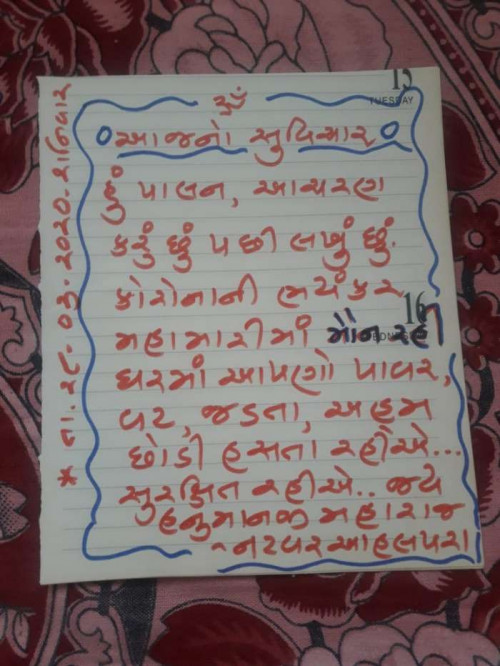 15
TUESDAY
ૐ
આજનો સુવિચાર
હું પાલન, આચરણ
કરું છું પછી લખું છું.
કોરોનાની ભયંકર
16
મહામારીમાં મૌન રહી
ઘરમાં આપણો પાવર,
વટ, જડતા, અહમ
છોડી હસતા રહીએ...
સુરક્ષિત રહીએ.. જય
હનુમાનજી મહારાજ
~નટવર આહલપરા
* તા. ૨૮. ૦૩. 2020. શનિવાર